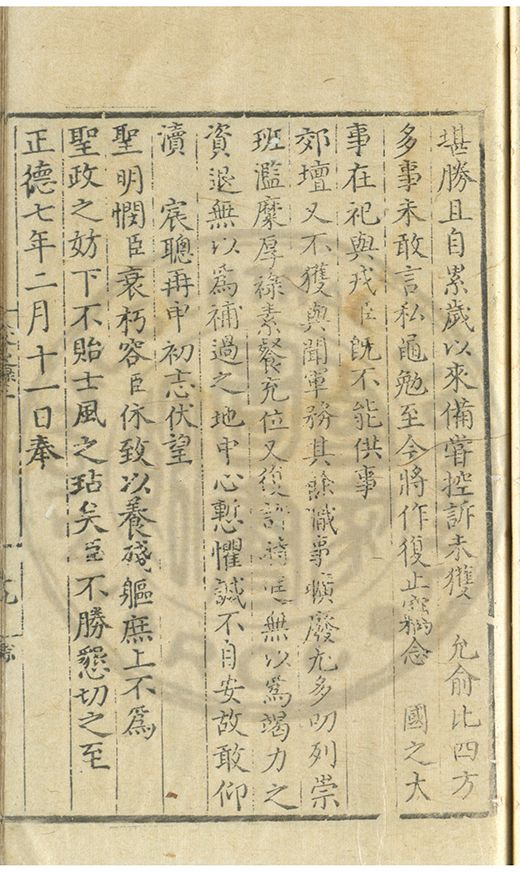 堪勝且自累歲以來備嘗控訴未獲　允俞比四方
多事未敢言私黽勉至今將作復止竊念　國之大
事在祀與戎臣既不能供事
郊壇又不獲與聞軍務其餘職事曠廢尤多叨列崇
班濫糜厚祿素餐充位又復無以爲竭力之
資退無以爲補過之地中心慙懼誠不自安故敢仰
瀆　宸聰再申初志伏望
聖明憫臣衰朽容臣休致以養殘軀庶上不爲
聖政之妨下不貽士風之玷矣臣不勝懇切之至
正德七年二月十一日奉